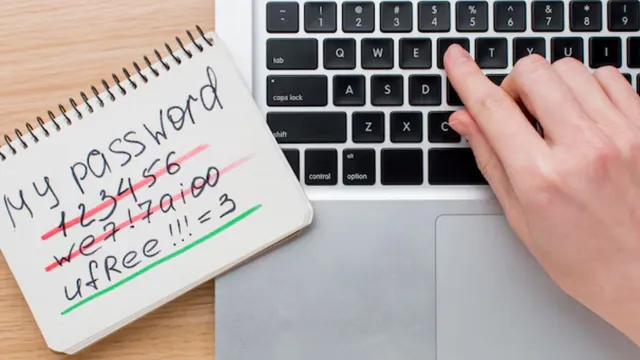 My password
123456
we7!7aioo
ufRee!!!=3
~ ! @ # $ % ^ & * (
` 1 2 3 4 5 6 7 8 9
tab Q W E T Y U I
caps lock A S D
shift Z X C
control alt
option